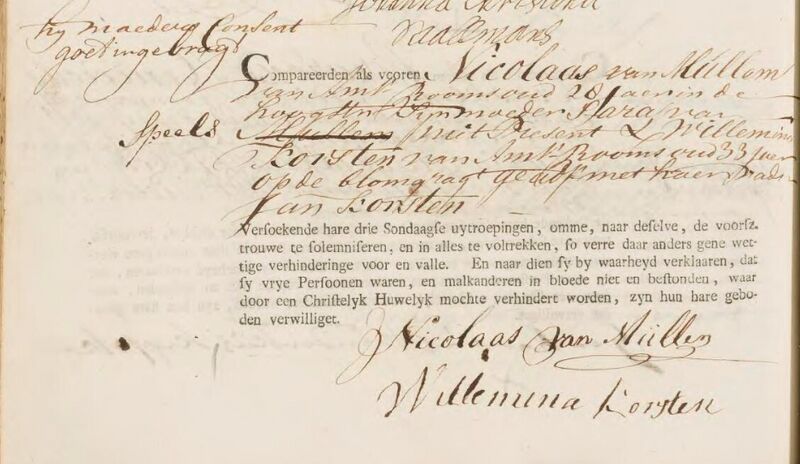 Johanna Christina
hy moeders Consent
goet ingebragt
Daallmans
Compareerden als vooren Nicolaas van Müllem
van Amst Rooms oud 28 Jaer in de
Speels
Mullem niet Present & Willemina
Korsten van Amst Rooms oud 33 Jaer
op de blomgragt geadst met haer vader
Jan Korsten
Versoekende hare drie Sondaagse uytroepingen, omme, naar deselve, de voorsz.
trouwe te solemniseren, en in alles te voltrekken, so verre daar anders gene wet-
tige verhinderinge voor en valle. En naar dien sy by waarheyd verklaaren, dat
sy vrye Persoonen waren, en malkanderen in bloede niet en bestonden, waar
door een Christelyk Huwelyk mochte verhindert worden, zyn hun hare gebo-
den verwilliget.
Nicolaas van Müllem
Willemina Korsten